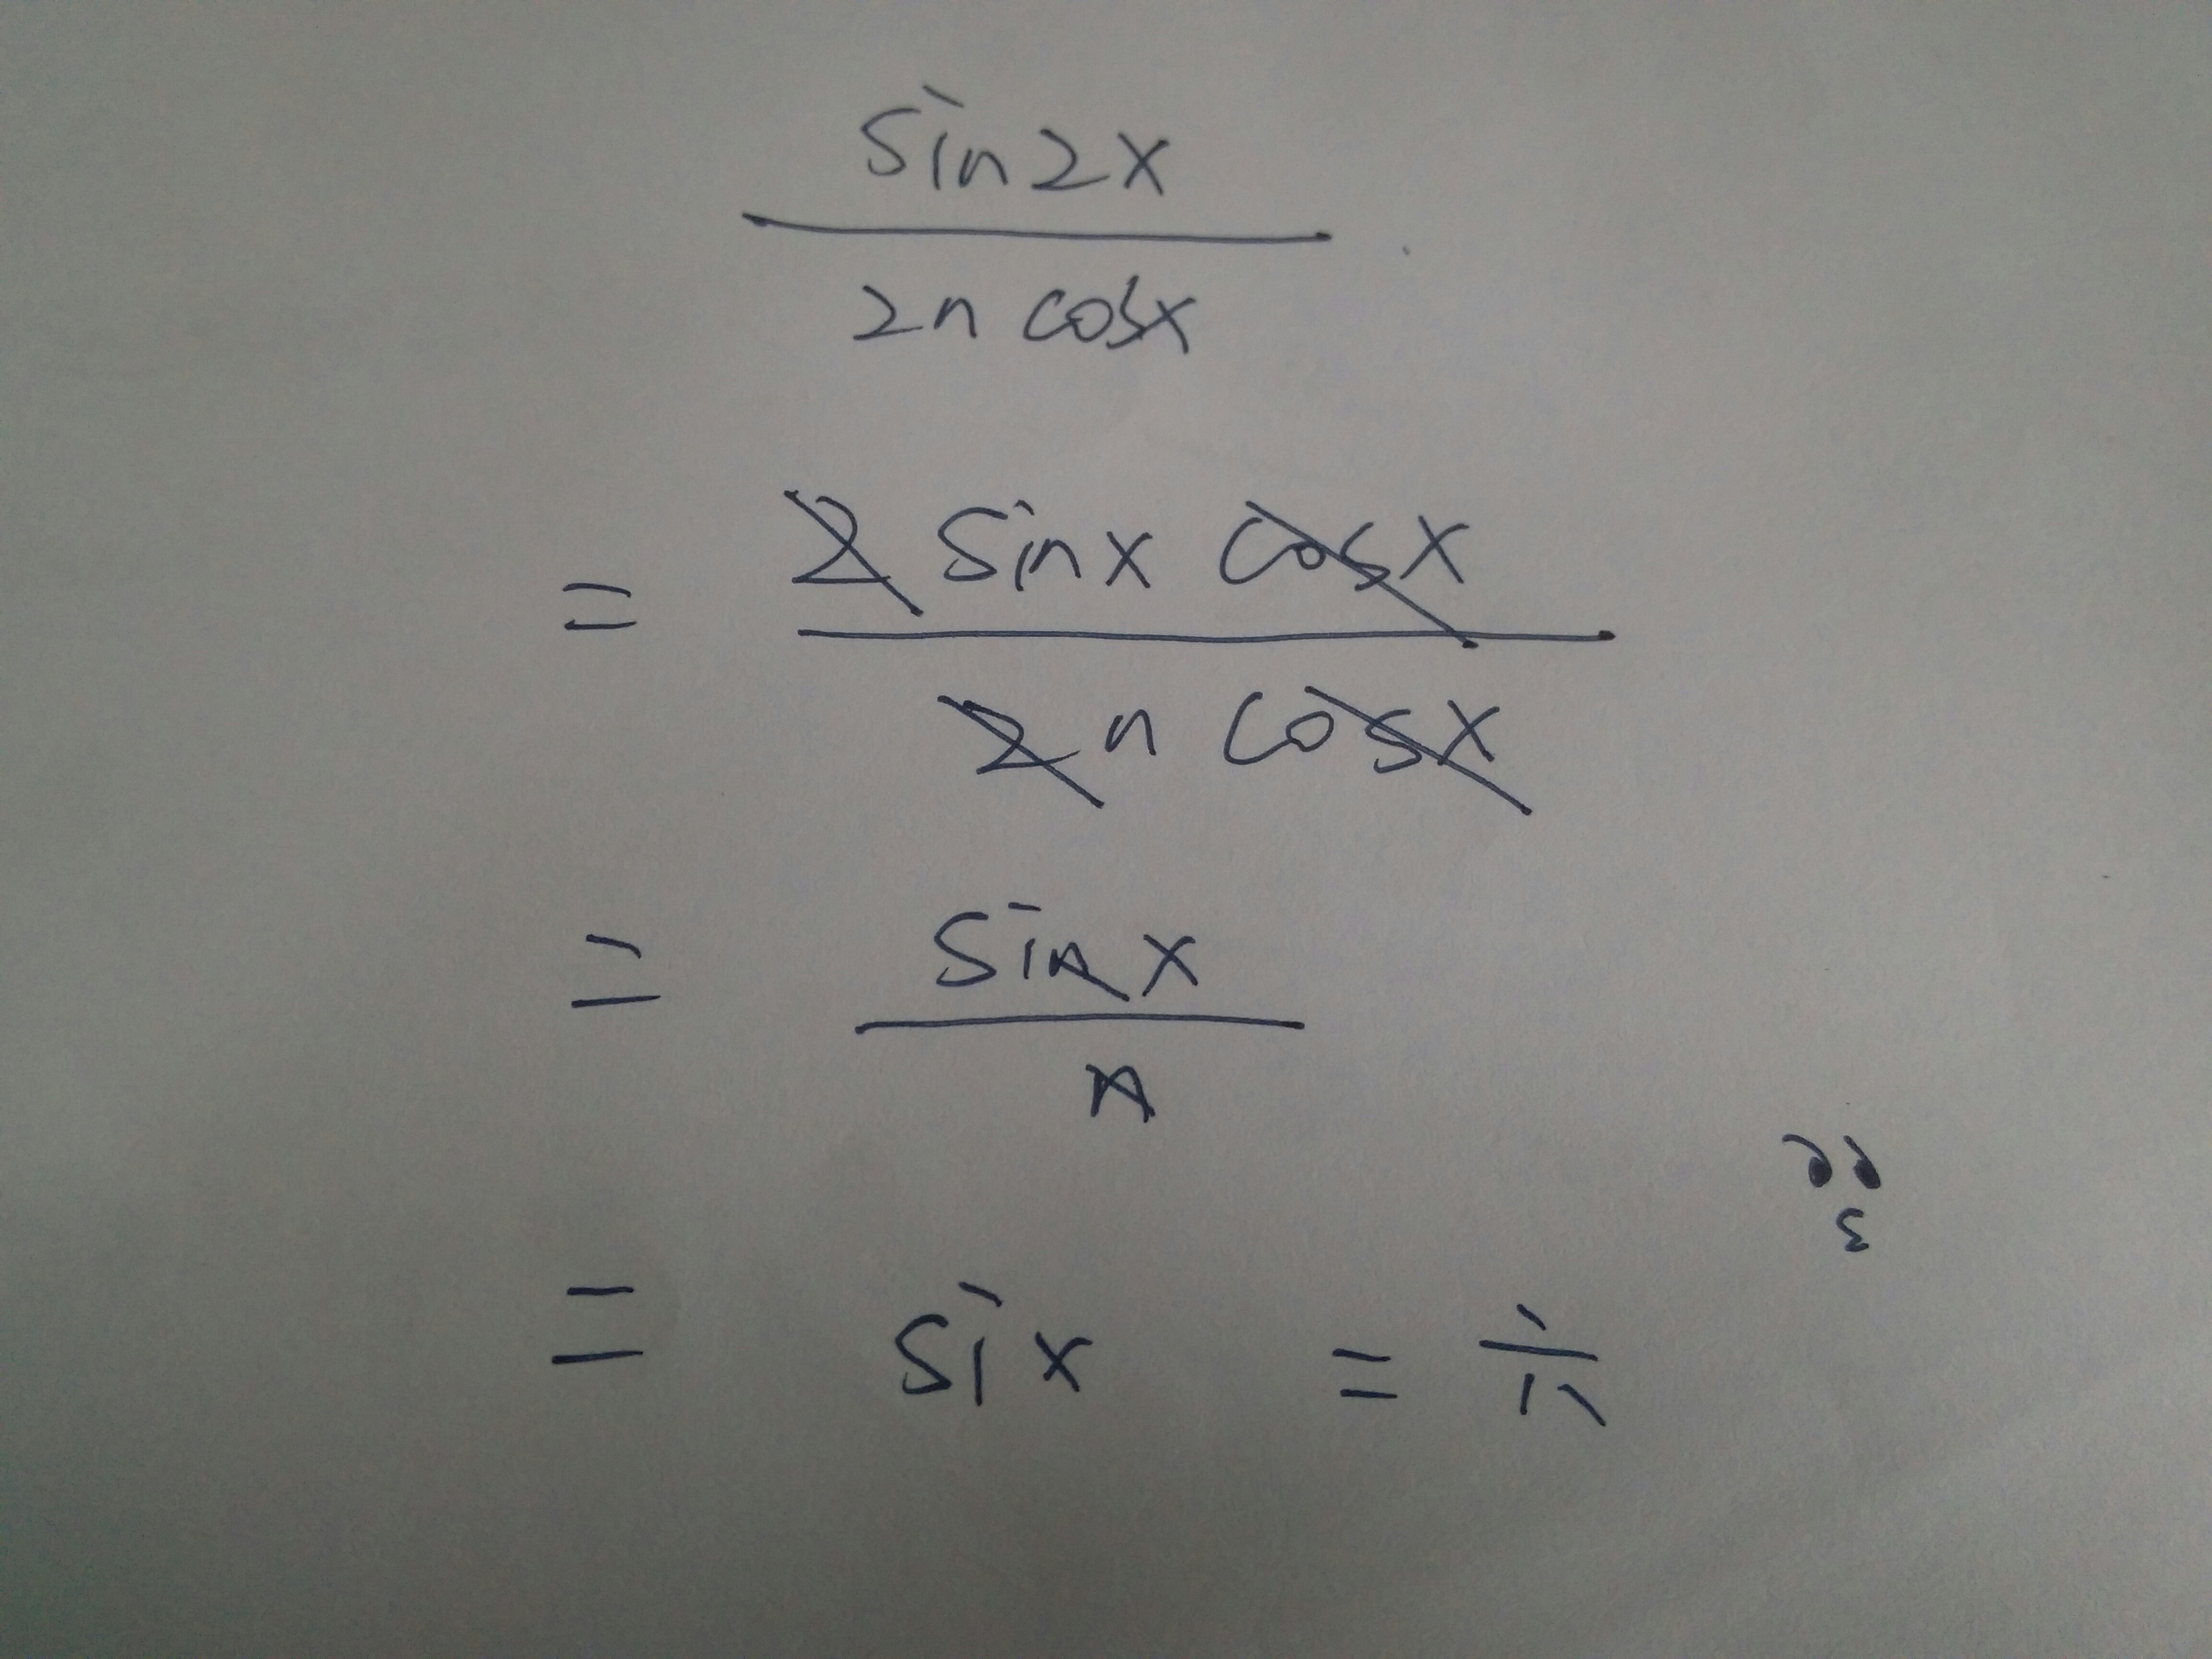 sin2x
2n cosx
= 2 sinx cosx
2n cosx
= sinx
n
= six = 六